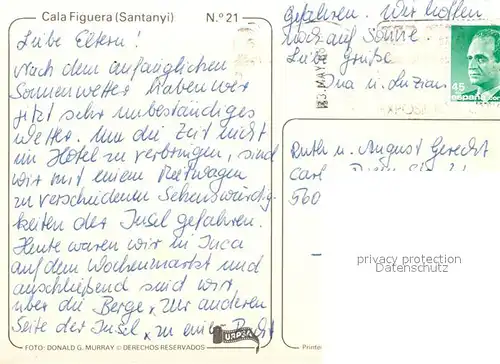 Cala Figuera (Santanyi) N.º 21
Liebe Eltern!
Nach dem anfänglichen
Sonnenwetter haben wir
jetzt sehr unbeständiges
Wetter. Um die Zeit nicht
im Hotel zu verbringen, sind
wir mit einem Mietwagen
zu verschiedenen Sehenswürdig-
keiten der Insel gefahren.
Heute waren wir in Inca
auf dem Wochenmarkt und
anschließend sind wir
über die Berge, zur anderen
Seite der Insel, zu einer Bucht
gefahren. Wir hoffen
noch auf Sonne.
Liebe Grüße
Ina u.
45
españa
MAY
Ruth u. August Gerecht
Carl
560
privacy protection
Datenschutz
FOTO: DONALD G. MURRAY © DERECHOS RESERVADOS
Printe